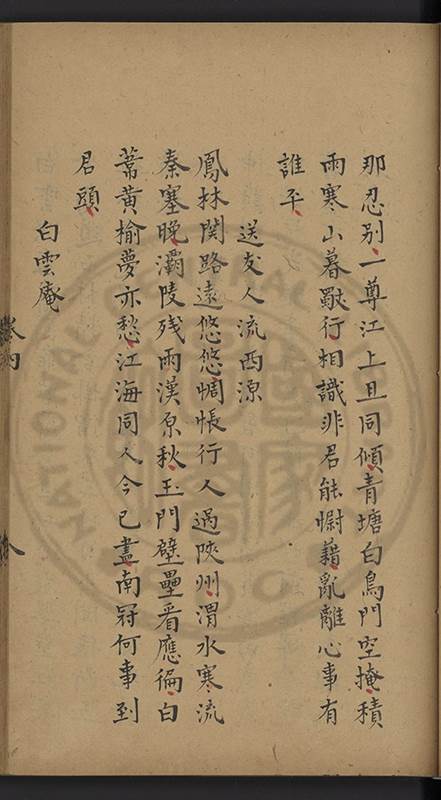 那忍别一尊江上且同傾青塘白鳥門空掩積
雨寒山暮獸行相識非君能慰藉亂離心事有
誰平
送友人流西源
鳳林関路遠悠悠惆悵行人過陜州渭水寒流
秦塞晚灞陵残雨漢原秋玉門壁壘看應徧白
葦黄榆夢亦愁江海同人今已盡南冠何事到
君頭
白雲庵